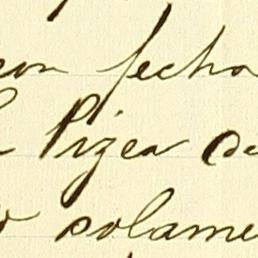 con fecha
Pizca de
solame